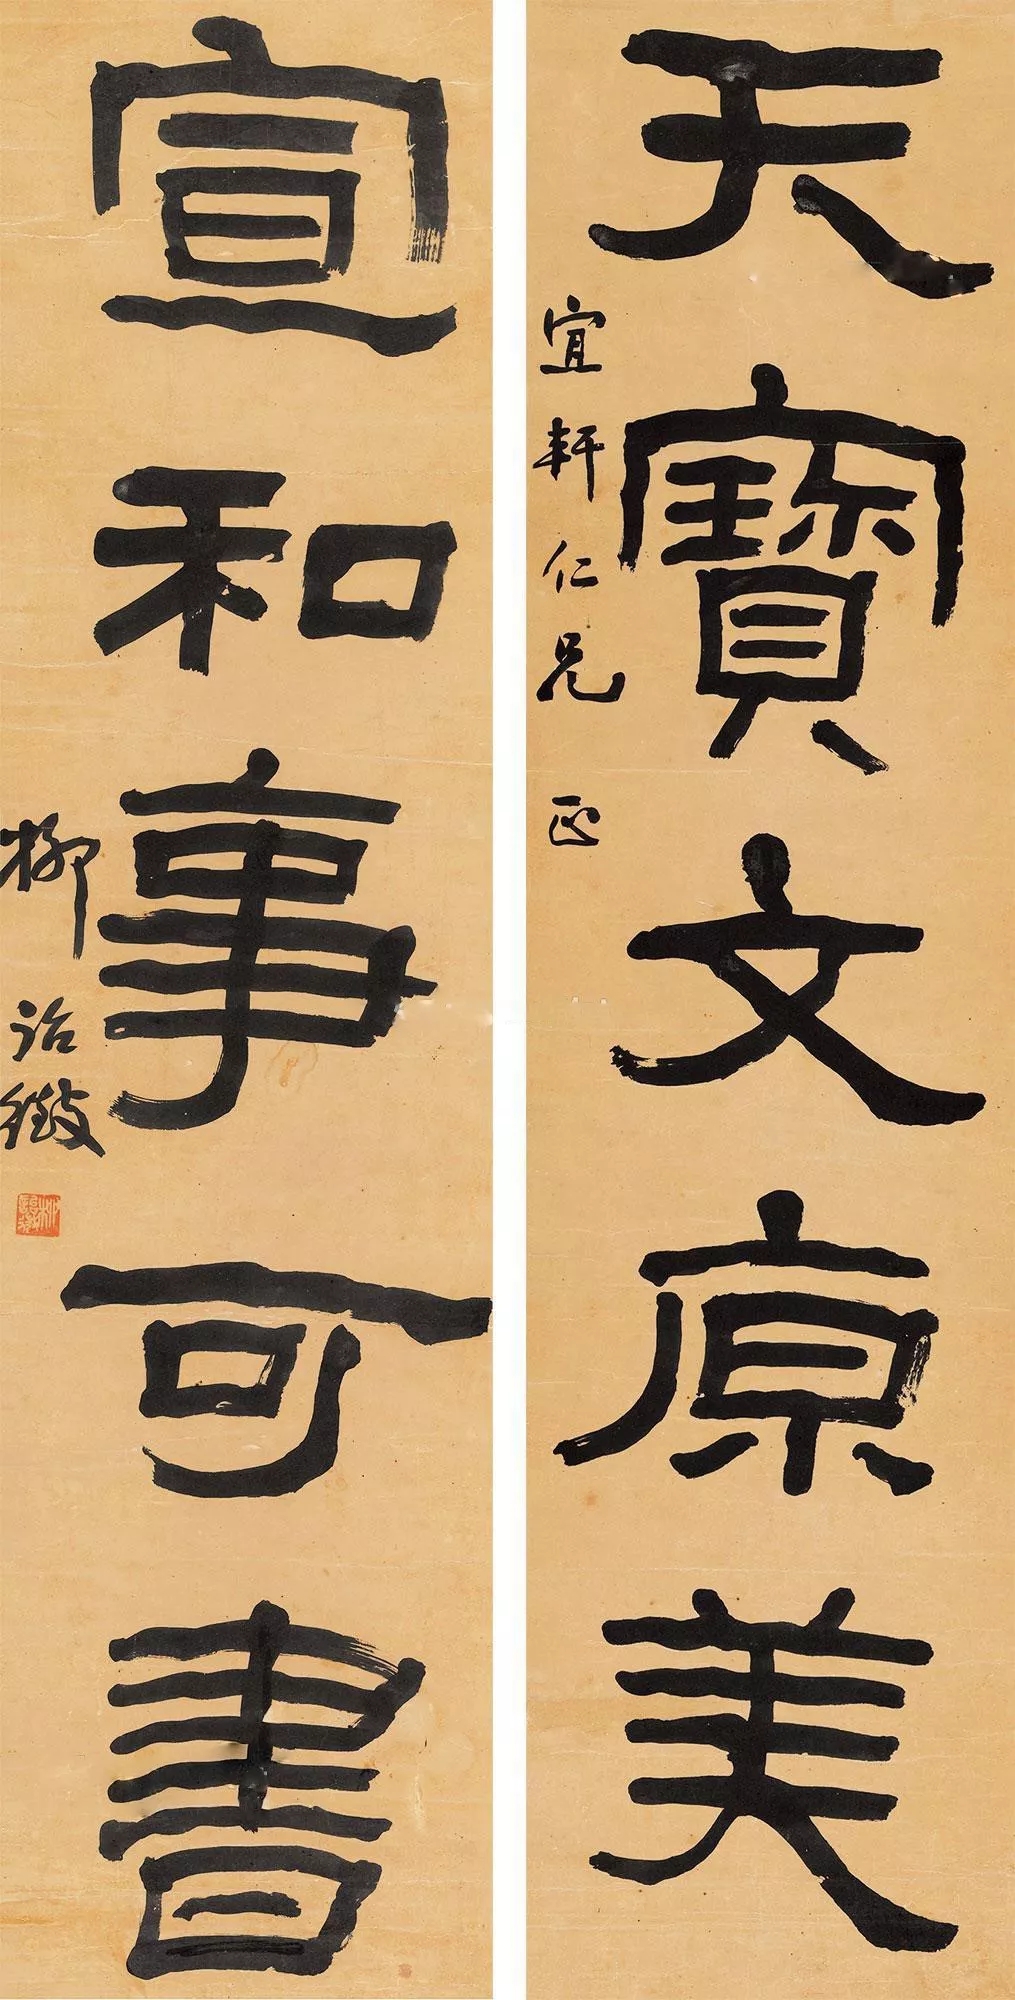 天寶文原美
宜軒仁兄正
宣和事可書
柳詒徵